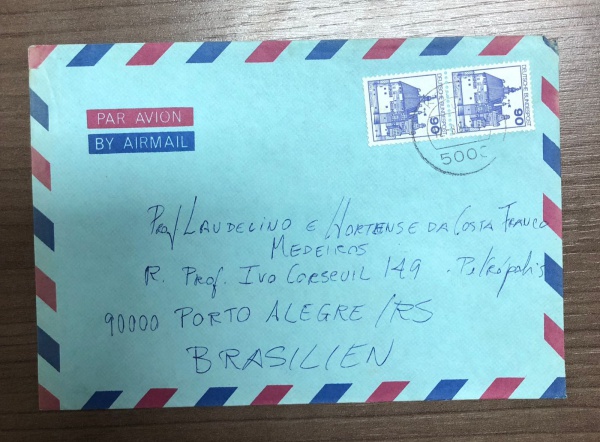 PAR AVION
BY AIRMAIL
DEUTSCHE BUNDESPOST
90
DEUTSCHE BUNDESPOST
90
500
Prof LAUDELINO E HORTENSE DA COSTA FRANCO
MEDEIROS
R. Prof. Ivo Corseuil 149 . Petrópolis
90000 PORTO ALEGRE/RS
BRASILIEN